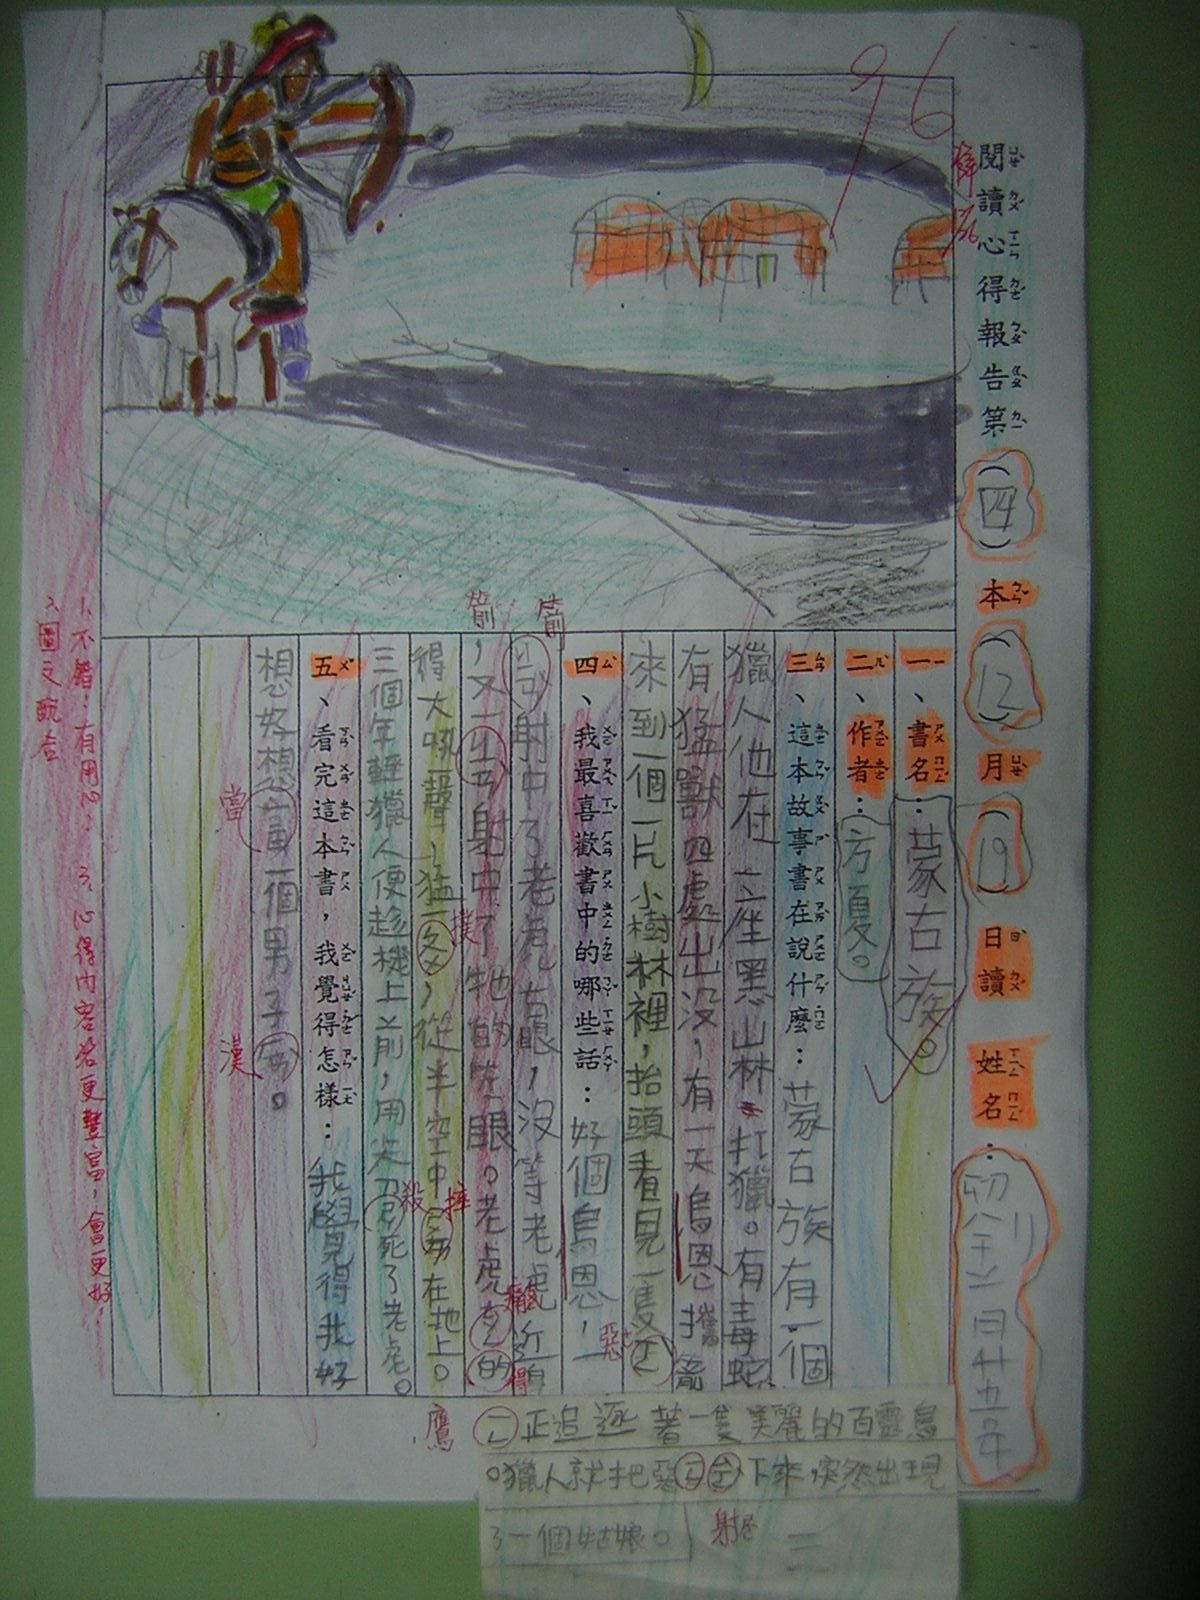 閱讀心得報告第(四)本(12)月(19)日讀 姓名:
96
一、書名:蒙古族。
二、作者:方夏。
三、這本故事書在說什麼:蒙古族有一個
獵人他在一座黑山林打獵。有毒蛇
有猛獸四處出沒,有一天烏恩攜箭
來到一個一片小樹林裡,抬頭看見一隻
正追逐著一隻美麗的百靈鳥
。獵人就把惡下來,突然出現
了一個姑娘。
四、我最喜歡書中的哪些話:好個烏恩,一
射中了老虎右眼,沒等老虎
,又一射中了牠的左眼。老虎
得大吼一聲,猛一,從半空中在地上。
三個年輕獵人便趁機上前,用尖刀死了老虎。
五、看完這本書,我覺得怎樣:我覺得我好
想好想一個男子。
箭
箭
撲
殺
摔
得
惡
鷹
射
當
漢
1、不錯!有用心!
3、心得內容若更豐富,會更好!